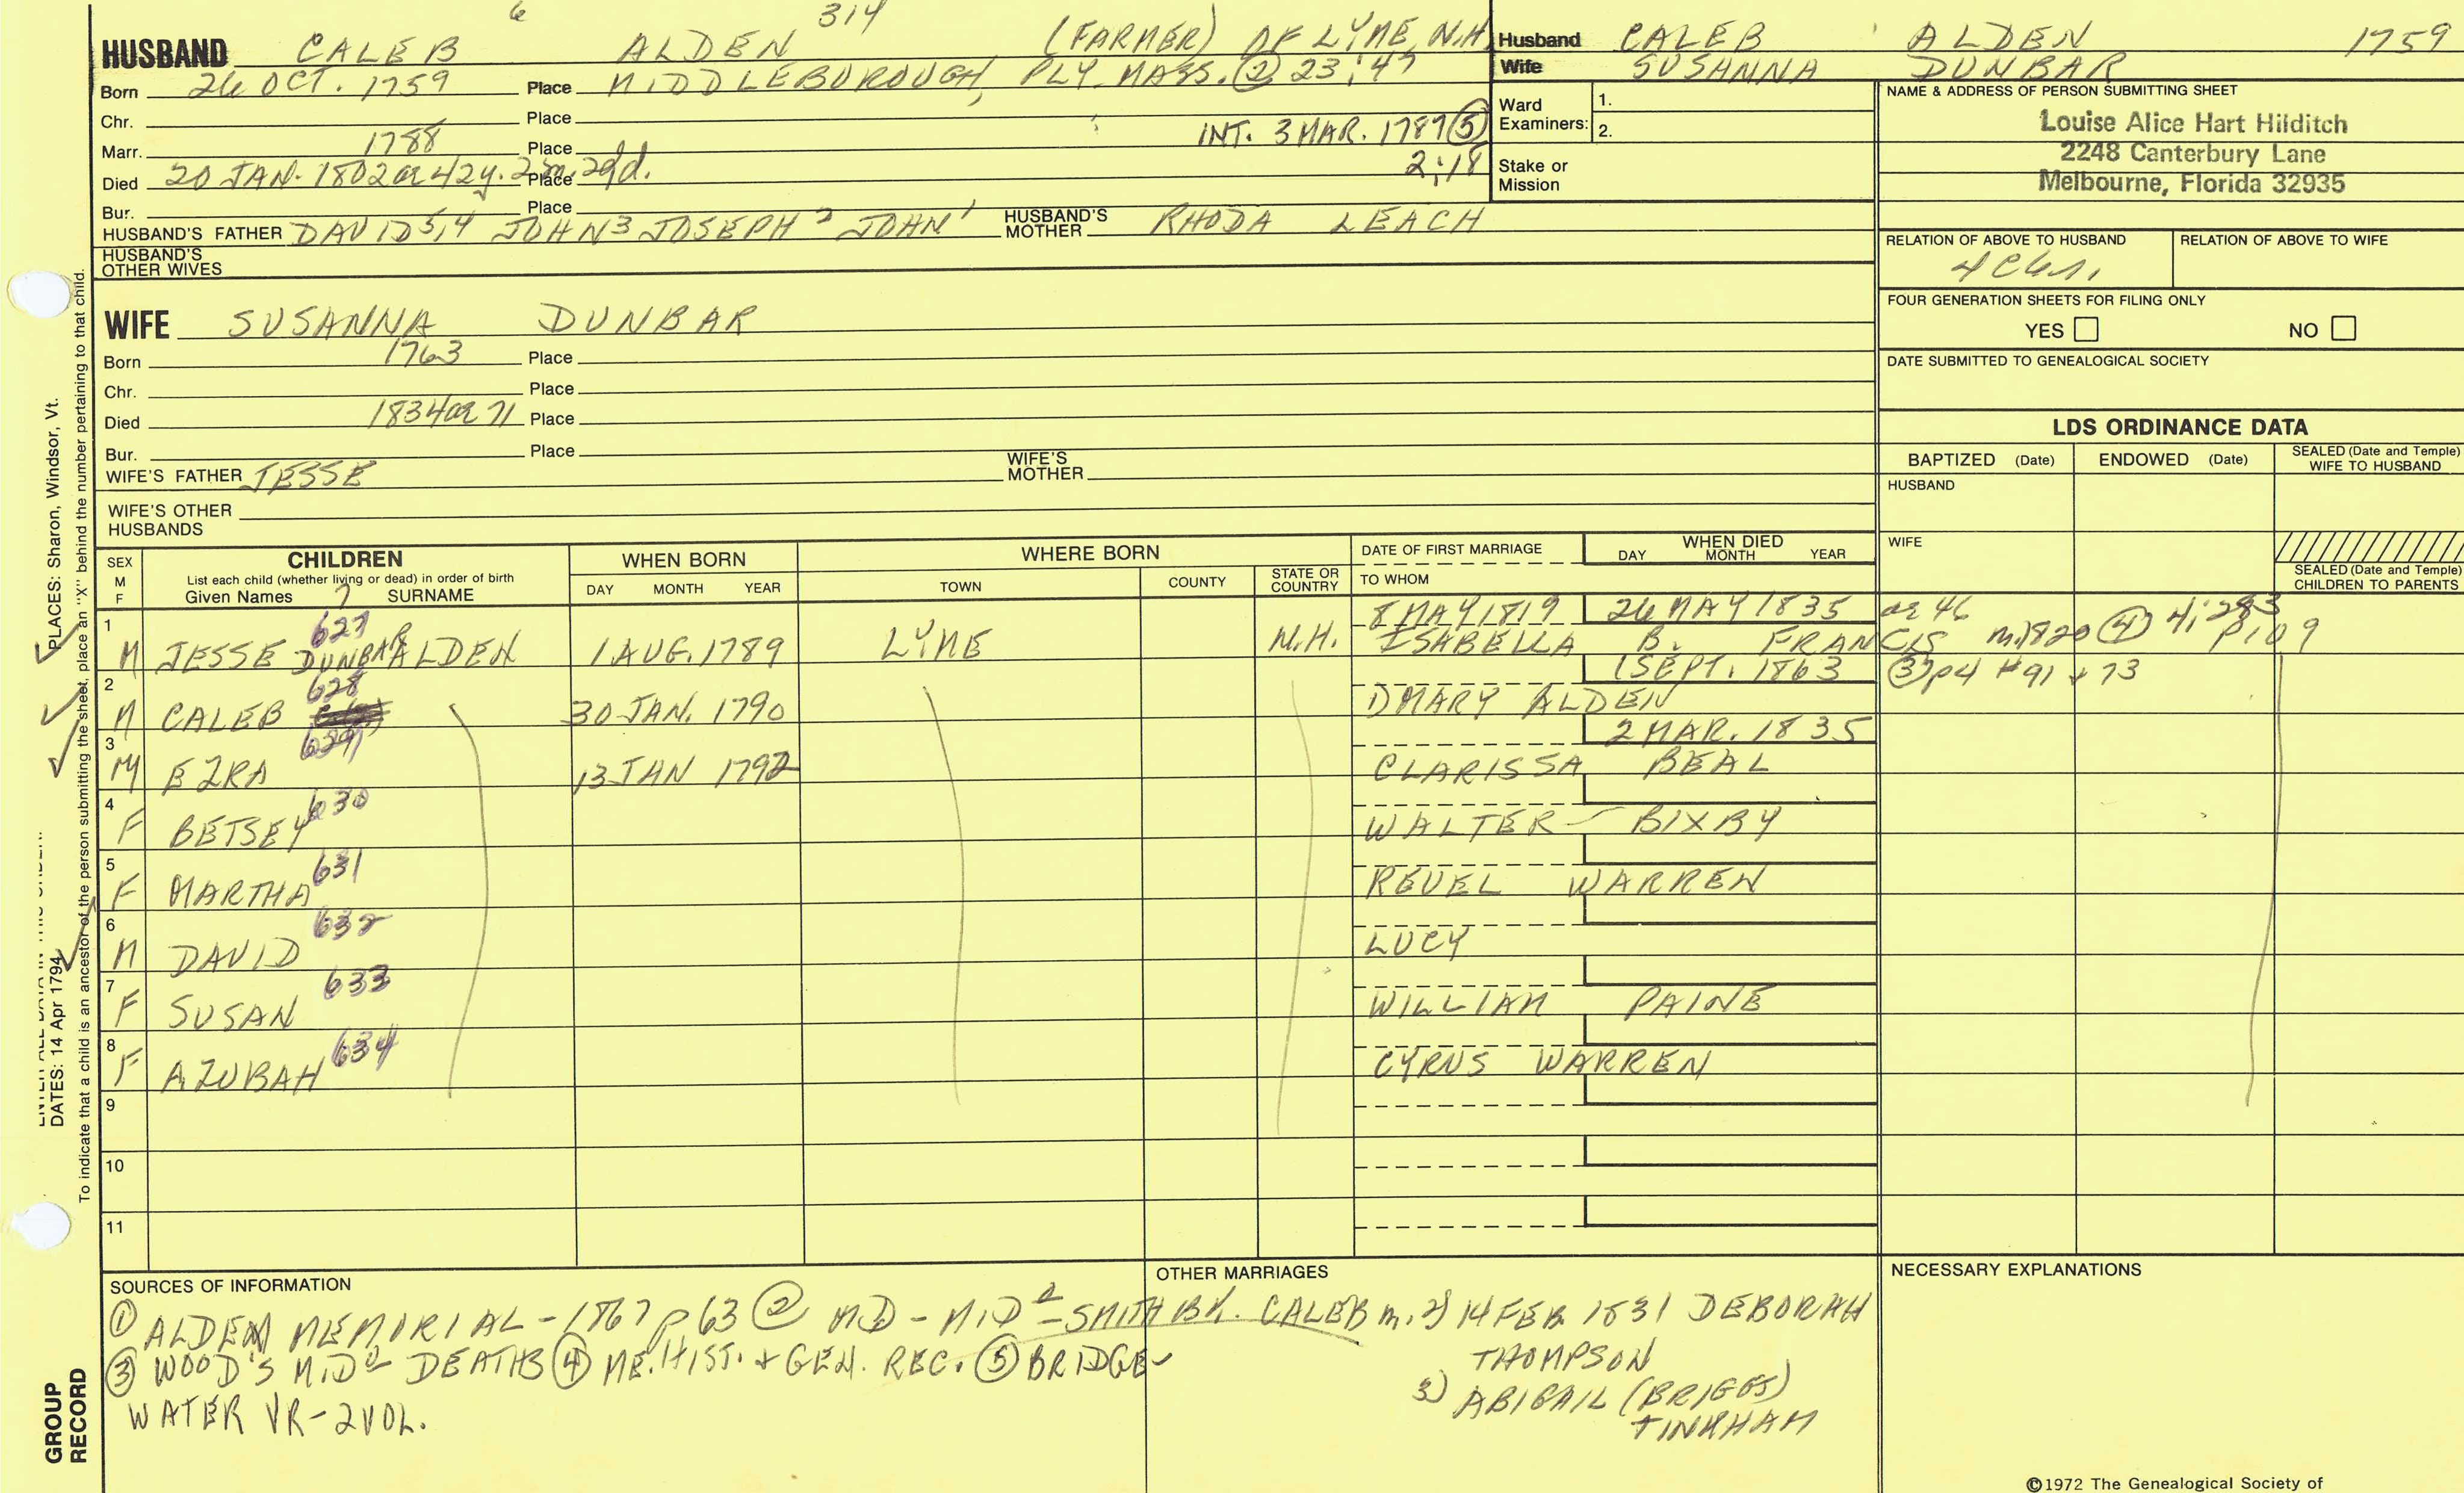 6 314
HUSBAND CALEB ALDEN (FARMER) OF LYME, N.H.
Born 26 OCT. 1759 Place MIDDLEBOROUGH, PLY. MASS. ② 23:47
Chr. Place
INT. 3 MAR. 1787 ⑤
Marr. 1788 Place
2:18
Died 20 JAN. 1802 ae 42y. 2m. 29d. Place
Bur. Place
HUSBAND'S FATHER DAVID 5,4 JOHN 3 JOSEPH 2 JOHN 1 HUSBAND'S MOTHER RHODA LEACH
HUSBAND'S OTHER WIVES
Husband CALEB ALDEN 1759
Wife SUSANNA DUNBAR
Ward Examiners: 1.
2.
Stake or Mission
NAME & ADDRESS OF PERSON SUBMITTING SHEET
Louise Alice Hart Hilditch
2248 Canterbury Lane
Melbourne, Florida 32935
RELATION OF ABOVE TO HUSBAND RELATION OF ABOVE TO WIFE
FOUR GENERATION SHEETS FOR FILING ONLY
YES NO
DATE SUBMITTED TO GENEALOGICAL SOCIETY
WIFE SUSANNA DUNBAR
Born 1763 Place
Chr. Place
Died 1834 ae 71 Place
Bur. Place
WIFE'S FATHER JESSE WIFE'S MOTHER
WIFE'S OTHER HUSBANDS
LDS ORDINANCE DATA
BAPTIZED (Date) ENDOWED (Date) SEALED (Date and Temple) WIFE TO HUSBAND
HUSBAND
WIFE
SEALED (Date and Temple) CHILDREN TO PARENTS
SEX M F
CHILDREN
List each child (whether living or dead) in order of birth
Given Names SURNAME
WHEN BORN
DAY MONTH YEAR
WHERE BORN
TOWN COUNTY STATE OR COUNTRY
DATE OF FIRST MARRIAGE
TO WHOM
WHEN DIED
DAY MONTH YEAR
1 627 8 MAY 1819 26 MAY 1835 ae 46
M JESSE DUNBAR ALDEN 1 AUG. 1789 LYME N.H. ISABELLA B. FRANCIS m. 1820 ④ 4:283 p109
2 628 1 SEPT. 1863 ③ p4 #91 + 73
M CALEB 30 JAN. 1790 1) MARY ALDEN
3 629 2 MAR. 1835
M EZRA 13 JAN 1792 CLARISSA BEAL
4 630
F BETSEY WALTER BIXBY
5 631
F MARTHA REUEL WARREN
6 632
M DAVID LUCY
7 633
F SUSAN WILLIAM PAINE
8 634
F AZUBAH CYRUS WARREN
9
10
11
SOURCES OF INFORMATION
① ALDEN MEMORIAL - 1867 p 63 ② MD - MID - SMITH BK.
③ WOOD'S MID DEATHS ④ ME. HIST. + GEN. REC. ⑤ BRIDGE-
WATER VR - 2 VOL.
OTHER MARRIAGES
CALEB m. 2) 14 FEB. 1831 DEBORAH
THOMPSON
3) ABIGAIL (BRIGGS)
TINKHAM
NECESSARY EXPLANATIONS
©1972 The Genealogical Society of
PLACES: Sharon, Windsor, Vt.
DATES: 14 Apr 1794
To indicate that a child is an ancestor of the person submitting the sheet, place an "X" behind the number pertaining to that child.
GROUP RECORD